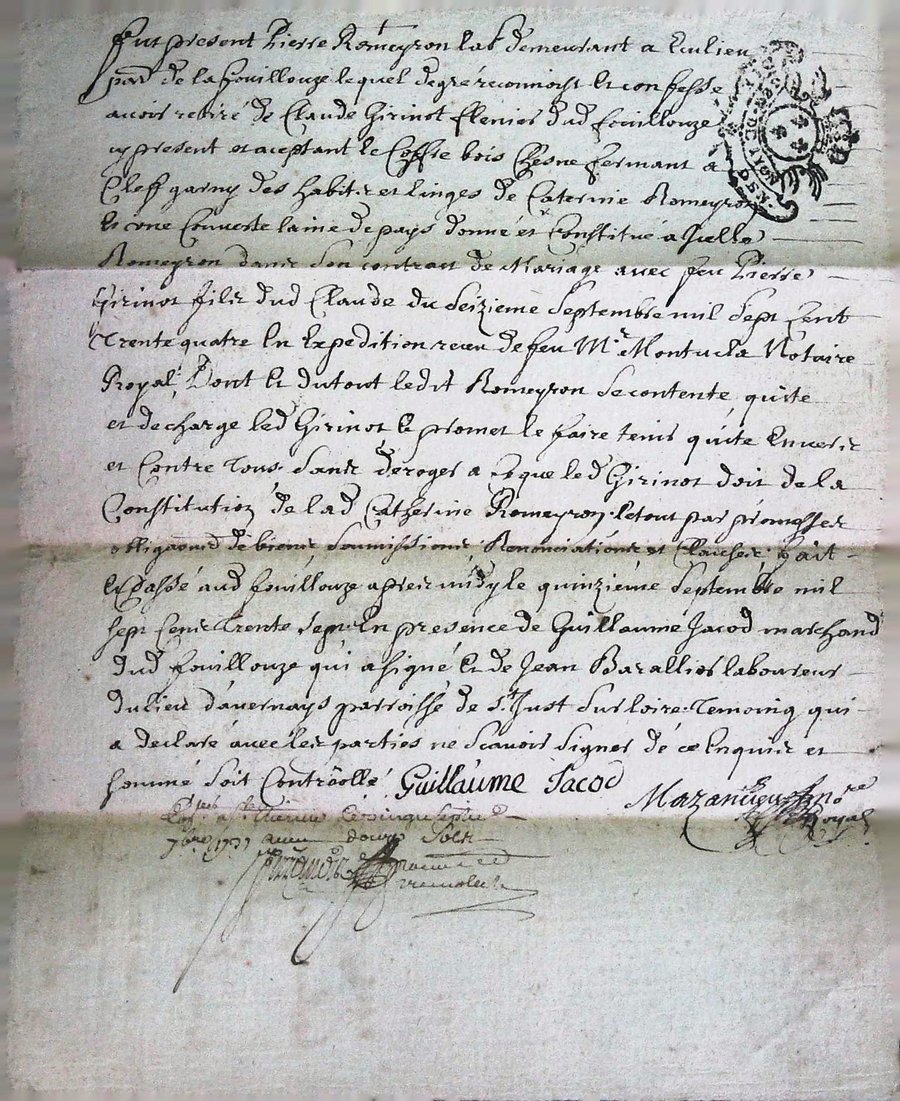 fut present Pierre Romeyron lab demeurant a Eculieu
parr de la fouillouze lequel degré reconnoist et confesse
avoir retiré de Claude Girinot dud fouillouze
cy present et aceptant le Coffre bois Chesne fermant a
Cleff garny des habitz et linges de Caterine Romeyron
et une Couverte laine de pays donné et Constitué a Icelle
Romeyron dans son contract de Mariage avec feu Pierre
Girinot filz dud Claude du seizieme septembre mil sept cent
trente quatre en Expedition receu de feu Me Montucla Notaire
Royal, Dont et du tout ledit Romeyron se contente quite
et decharge led Girinot et promet le faire tenir quite Envers
et Contre tous sans deroger a ce que led Girinot doit de la
Constitution de lad Catherine Romeyron le tout par promesses
obligaons de biens soumissions Renonciations et Clauses fait
et Passé aud fouillouze apres midy le quinzieme septembre mil
sept Cent trente sept En presence de Guillaume Jacod marchand
dud fouillouze qui a signé et de Jean Barallior laboureur
du lieu davernays parroisse de St Just sur loire Temoing qui
a declaré avec les parties ne scavoir signer de ce Enquis et
sommé soit Contrôollé Guillaume Jacod
Mazandieu nore
Royal
a St Etienne le vingt sept
7bre 1737 douze sols